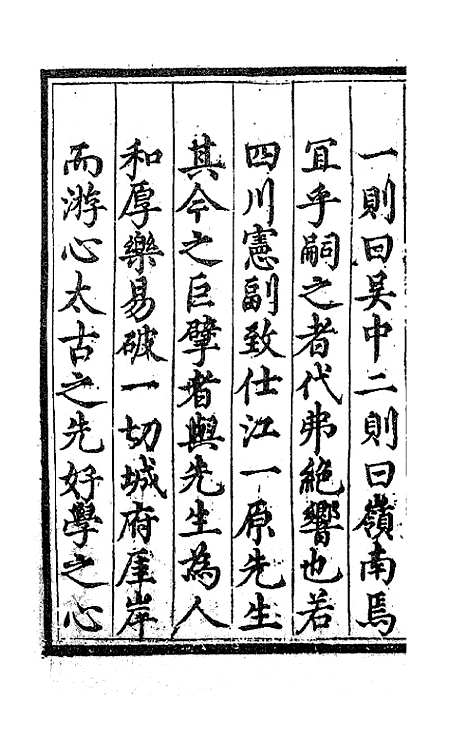 一則曰吴中二則曰嶺南焉
宜乎嗣之者代弗絶響也若
四川憲副致仕江一原先生
其今之巨擘者與先生為人
和厚樂易破一切城府厓岸
而游心太古之先好學之心